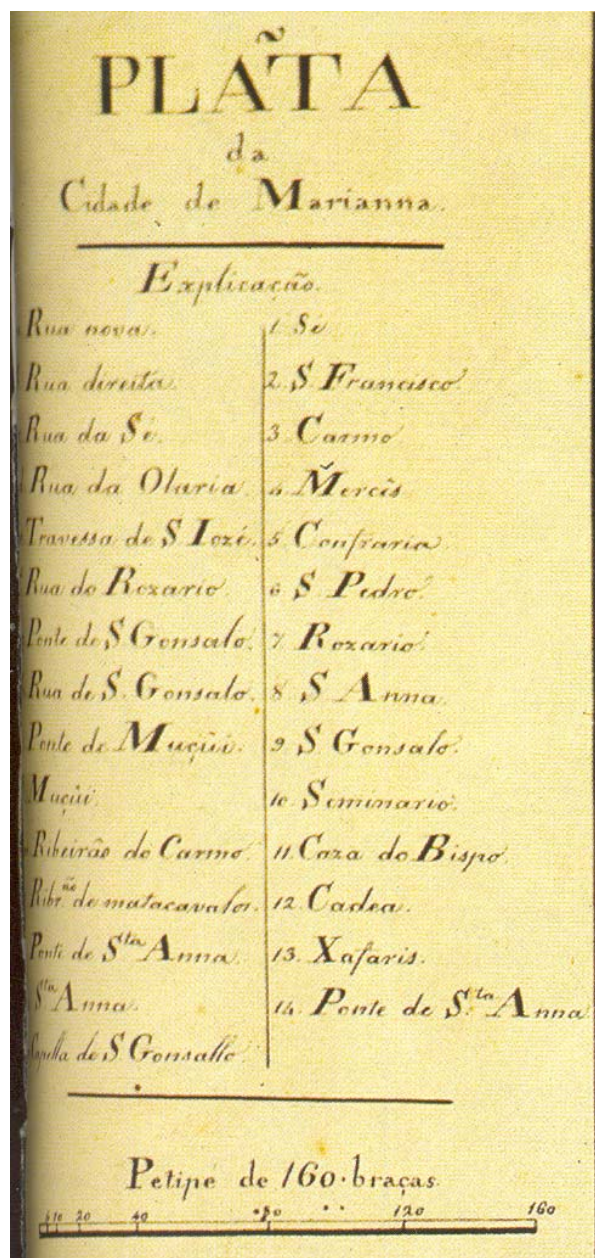 PLÃTA
da
Cidade de Marianna.
Explicação.
Rua nova.
Rua direita.
Rua da Sé.
Rua da Olaria.
Travessa de S Iozé.
Rua do Rozario.
Ponte de S Gonsalo.
Rua de S. Gonsalo.
Ponte de Muçüi.
Muçüi.
Ribeirão do Carmo.
Ribr.ão de matacavalos.
Ponte de S.ta Anna.
S.ta Anna.
Capella de S. Gonsallo.
1 Sé
2 S Francisco.
3 Carmo
4 Mercês
5 Confraria.
6 S Pedro.
7 Rozario.
8 S Anna.
9 S Gonsalo.
10 Seminario.
11 Caza do Bispo.
12 Cadea.
13. Xafaris.
14. Ponte de S.ta Anna
Petipé de 160 braças.
10 20 40 80 120 160